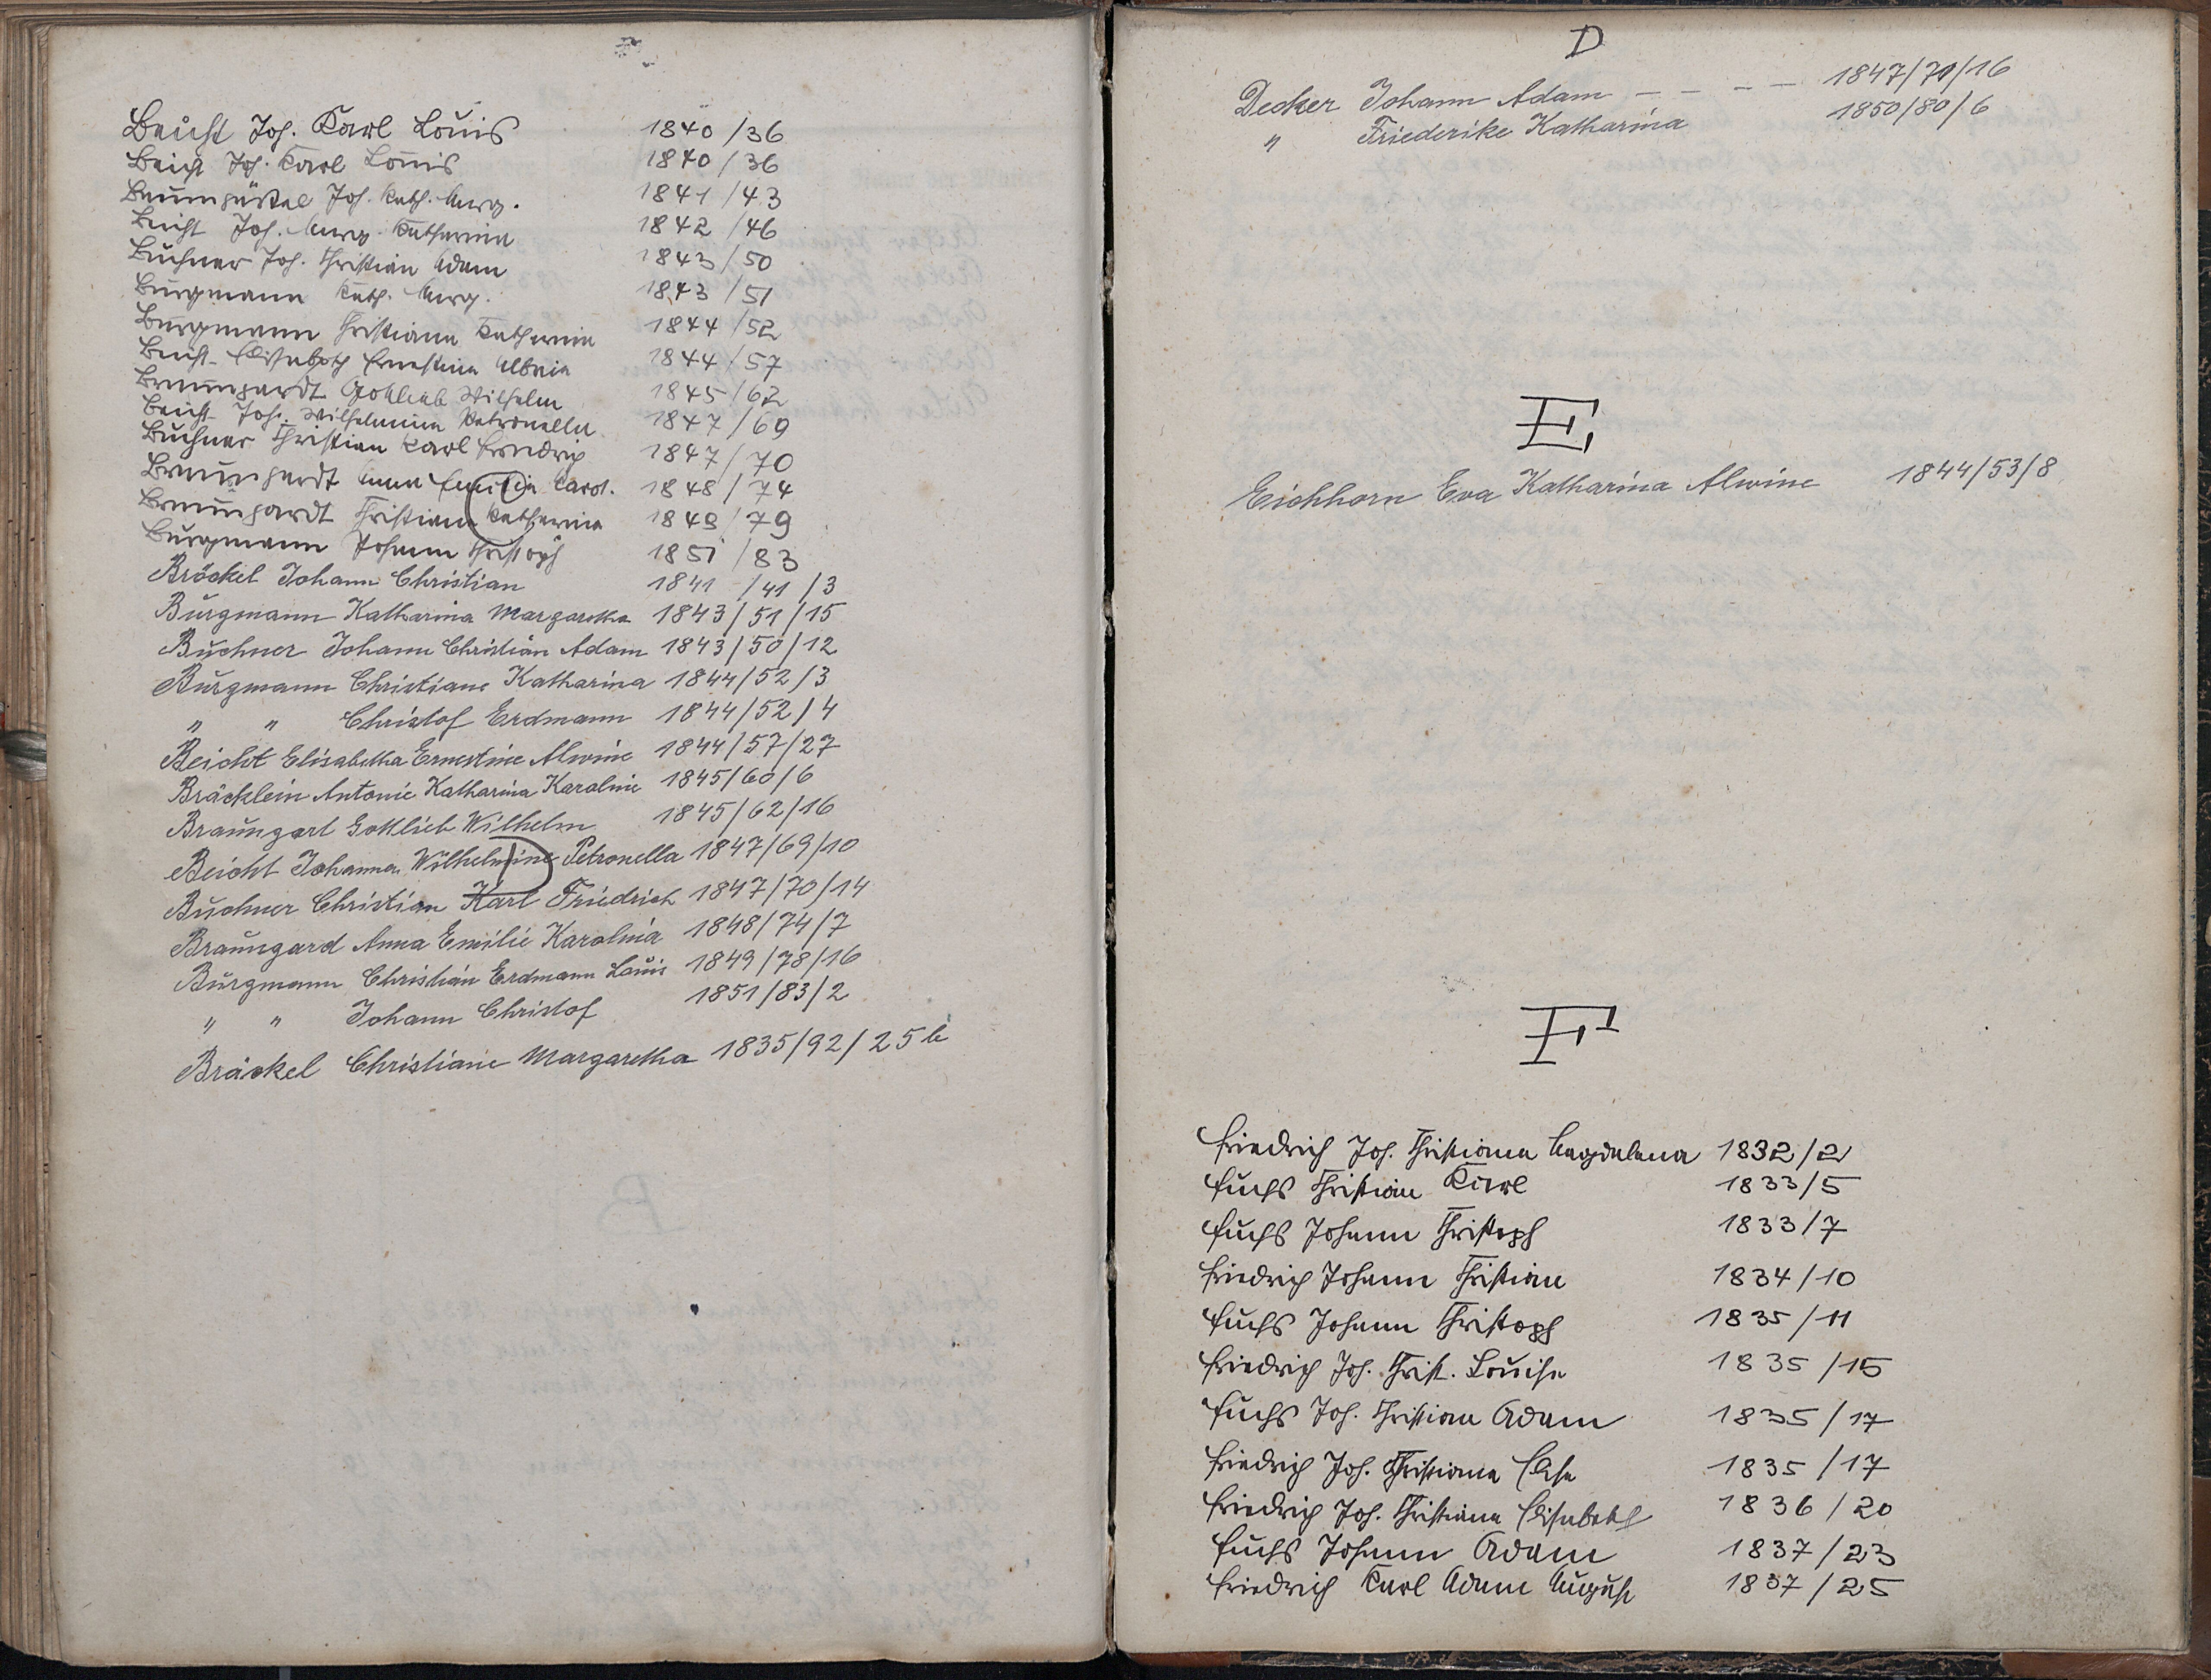 Beicht Joh. Karl Louis 1840/36
Beicht Joh. Karl Louis 1840/36
Baumgärtel Joh. Kath. Marg. 1841/43
Beicht Joh. Marg. Katharina 1842/46
Buchner Joh. Christian Adam 1843/50
Burgmann Kath. Marg. 1843/51
Burgmann Christiana Katharina 1844/52
Beicht Elisabeth Ernestine Albrin 1844/57
Braungardt Gottlieb Wilhelm 1845/62
Beicht Joh. Wilhelmina Petronella 1847/69
Buchner Christian Karl Friedrich 1847/70
Braungardt Anna Emilia Carol. 1848/74
Braungardt Christiana Katharina 1849/79
Burgmann Johann Christoph 1851/83
Bröckel Johann Christian 1841/41/3
Burgmann Katharina Margaretha 1843/51/15
Buchner Johann Christian Adam 1843/50/12
Burgmann Christiane Katharina 1844/52/3
" " Christof Erdmann 1844/52/4
Beicht Elisabetha Ernestine Alwine 1844/57/27
Bräcklein Antonie Katharina Karoline 1845/60/6
Braungart Gottlieb Wilhelm 1845/62/16
Beicht Johanna Wilhelmine Petronella 1847/69/10
Buchner Christian Karl Friedrich 1847/70/14
Braungard Anna Emilie Karolina 1848/74/7
Burgmann Christian Erdmann Louis 1849/78/16
" " Johann Christof 1851/83/2
Bräckel Christiane Margaretha 1835/92/25b
D
Decker Johann Adam - - - - 1847/70/16
" Friederike Katharina 1850/80/6
E
Eichhorn Eva Katharina Alwine 1844/53/8
F
Friedrich Joh. Christiana Magdalena 1832/2
Fuchs Christian Karl 1833/5
Fuchs Johann Christoph 1833/7
Friedrich Johann Christian 1834/10
Fuchs Johann Christoph 1835/11
Friedrich Joh. Christ. Louise 1835/15
Fuchs Joh. Christian Adam 1835/17
Friedrich Joh. Christiana Else 1835/17
Friedrich Joh. Christiana Elisabeth 1836/20
Fuchs Johann Adam 1837/23
Friedrich Karl Adam August 1837/25